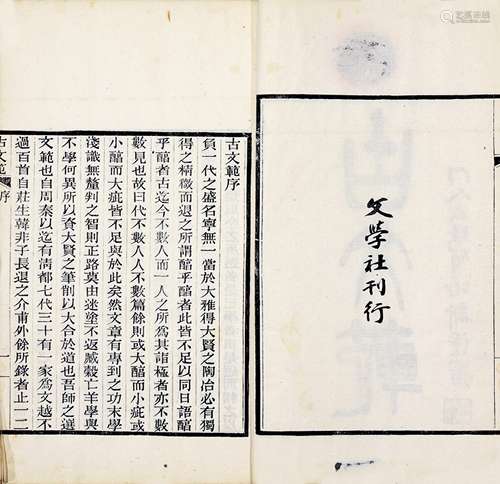 文學社刊行
古文範序
負一代之盛名寧無一當於大雅得大賢之陶冶必有獨
得之精微而退之所謂醕乎醕者此皆不足同日語醕
乎醕者古迄今不數人而一人之所為其詣極者亦不數
數見也故曰代不數人人不數篇餘則或大醕而小疵或
小醕而大疵皆不足與於此矣然文章有專到之功末學
淺識無釐判之智則正路莫由迷塗不返臧穀亡羊學與
不學何異所以資大賢之筆削以大合於道也吾師之選
文範也自周秦以迄有清都七代三十有一家為文越不
過百首自莊生韓非子長退之介甫外餘所錄者止一二
古文範 序